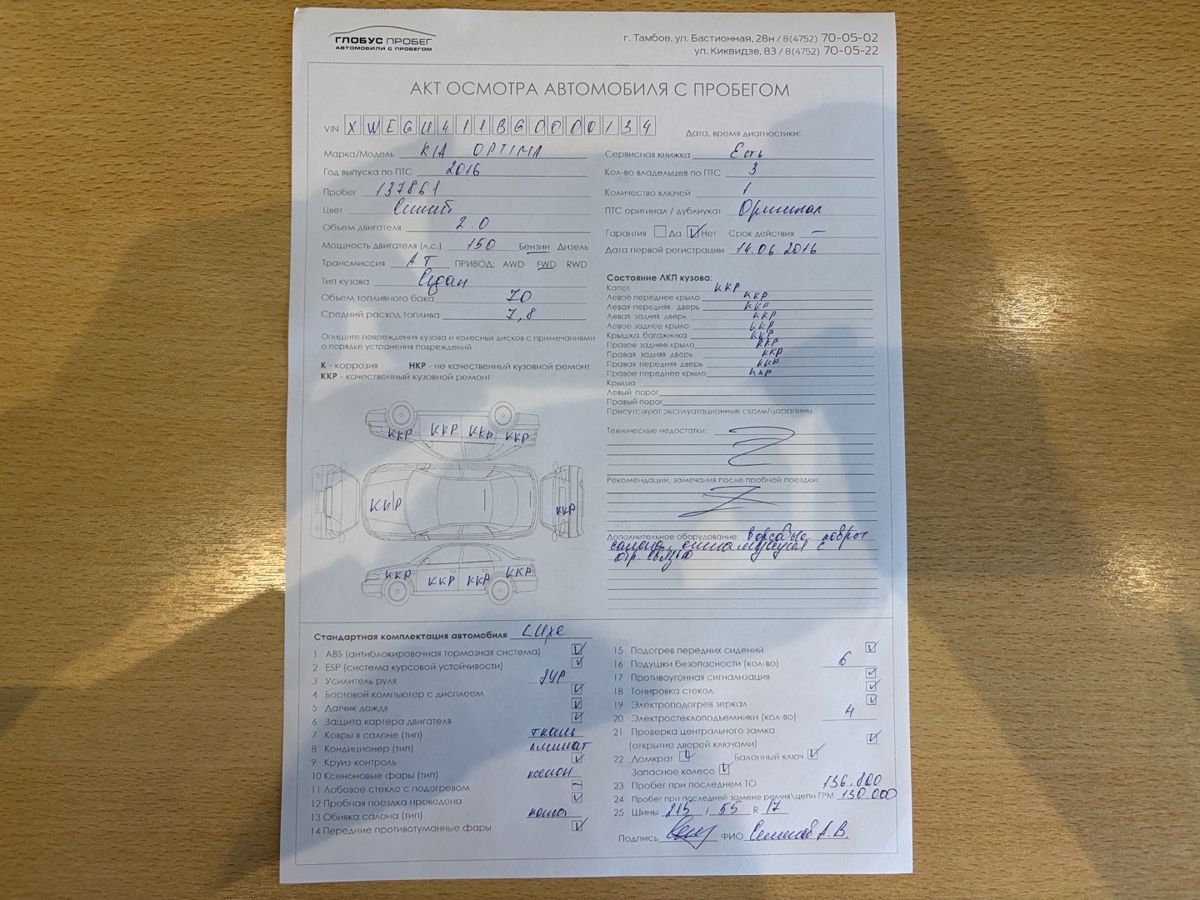 ГЛОБУС ПРОБЕГ
АВТОМОБИЛИ С ПРОБЕГОМ
г. Тамбов, ул. Бастионная, 28н / 8(4752) 70-05-02
ул. Киквидзе, 83 / 8(4752) 70-05-22
АКТ ОСМОТРА АВТОМОБИЛЯ С ПРОБЕГОМ
VIN XWEGU411BG0000134
Дата, время диагностики:
Марка/Модель KIA OPTIMA
Год выпуска по ПТС 2016
Пробег 137861
Цвет Синий
Объем двигателя 2.0
Мощность двигателя (л.с.) 150 Бензин Дизель
Трансмиссия АТ ПРИВОД: AWD FWD RWD
Тип кузова Седан
Объем топливного бака 70
Средний расход топлива 7,8
Сервисная книжка Есть
Кол-во владельцев по ПТС 3
Количество ключей 1
ПТС оригинал / дубликат Оригинал
Гарантия Да Нет Срок действия —
Дата первой регистрации 14.06.2016
Опишите повреждения кузова и колесных дисков с примечаниями
о порядке устранения повреждений
К - коррозия НКР - не качественный кузовной ремонт
ККР - качественный кузовной ремонт
ККР ККР ККР ККР
ККР ККР
ККР ККР ККР ККР
Состояние ЛКП кузова:
Капот ККР
Левое переднее крыло ККР
Левая передняя дверь ККР
Левая задняя дверь ККР
Левое заднее крыло ККР
Крышка багажника ККР
Правое заднее крыло ККР
Правая задняя дверь ККР
Правая передняя дверь ККР
Правое переднее крыло ККР
Крыша
Левый порог
Правый порог
Присутствуют эксплуатационные сколы/царапины.
Технические недостатки:
Рекомендации, замечания после пробной поездки:
Дополнительное оборудование:
салона, сигнализация с
обр. связью
Стандартная комплектация автомобиля Luxe
1 ABS (антиблокировочная тормозная система)
2 ESP (система курсовой устойчивости)
3 Усилитель руля ЭУР
4 Бортовой компьютер с дисплеем
5 Датчик дождя
6 Защита картера двигателя
7 Ковры в салоне (тип) ткань
8 Кондиционер (тип) климат
9 Круиз-контроль
10 Ксеноновые фары (тип) ксенон
11 Лобовое стекло с подогревом —
12 Пробная поездка проведена
13 Обивка салона (тип) кожа
14 Передние противотуманные фары
15 Подогрев передних сидений
16 Подушки безопасности (кол-во) 6
17 Противоугонная сигнализация
18 Тонировка стекол
19 Электроподогрев зеркал
20 Электростеклоподъемники (кол-во) 4
21 Проверка центрального замка
(открытие дверей ключами)
22 Домкрат Балонный ключ
Запасное колесо
23 Пробег при последнем ТО 136.800
24 Пробег при последней замене ремня\цепи ГРМ 130 000
25 Шины 215 / 55 R 17
Подпись ФИО Семенов А.В.